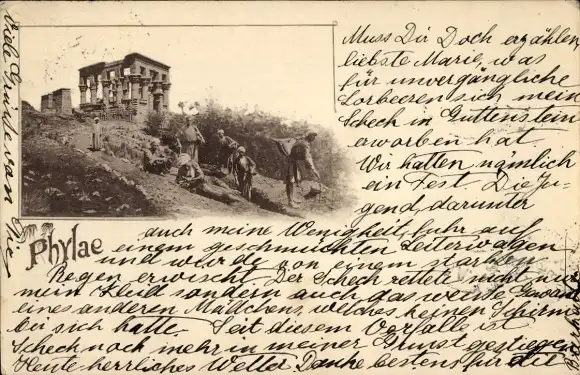 Muss Dir Doch erzählen
liebste Marie, was
für unvergängliche
Lorbeeren sich mein
Scheck in Guttenstein
erworben hat.
Wir hatten nämlich
ein Fest. Die Ju-
gend, darunter
auch meine Wenigkeit fuhr auf
einem geschmückten Leiterwagen
und wurde von einem starken
Regen erwischt. Der Scheck rettete nicht nur
mein Kleid sondern auch das weisse Gewand
eines anderen Mädchens, welches keinen Schirm
bei sich hatte. Seit diesem Vorfalle ist
Scheck noch mehr in meiner Gunst gestiegen
Heute herrliches Wetter Danke bestens für die
Phylae
Viele Grüsse von